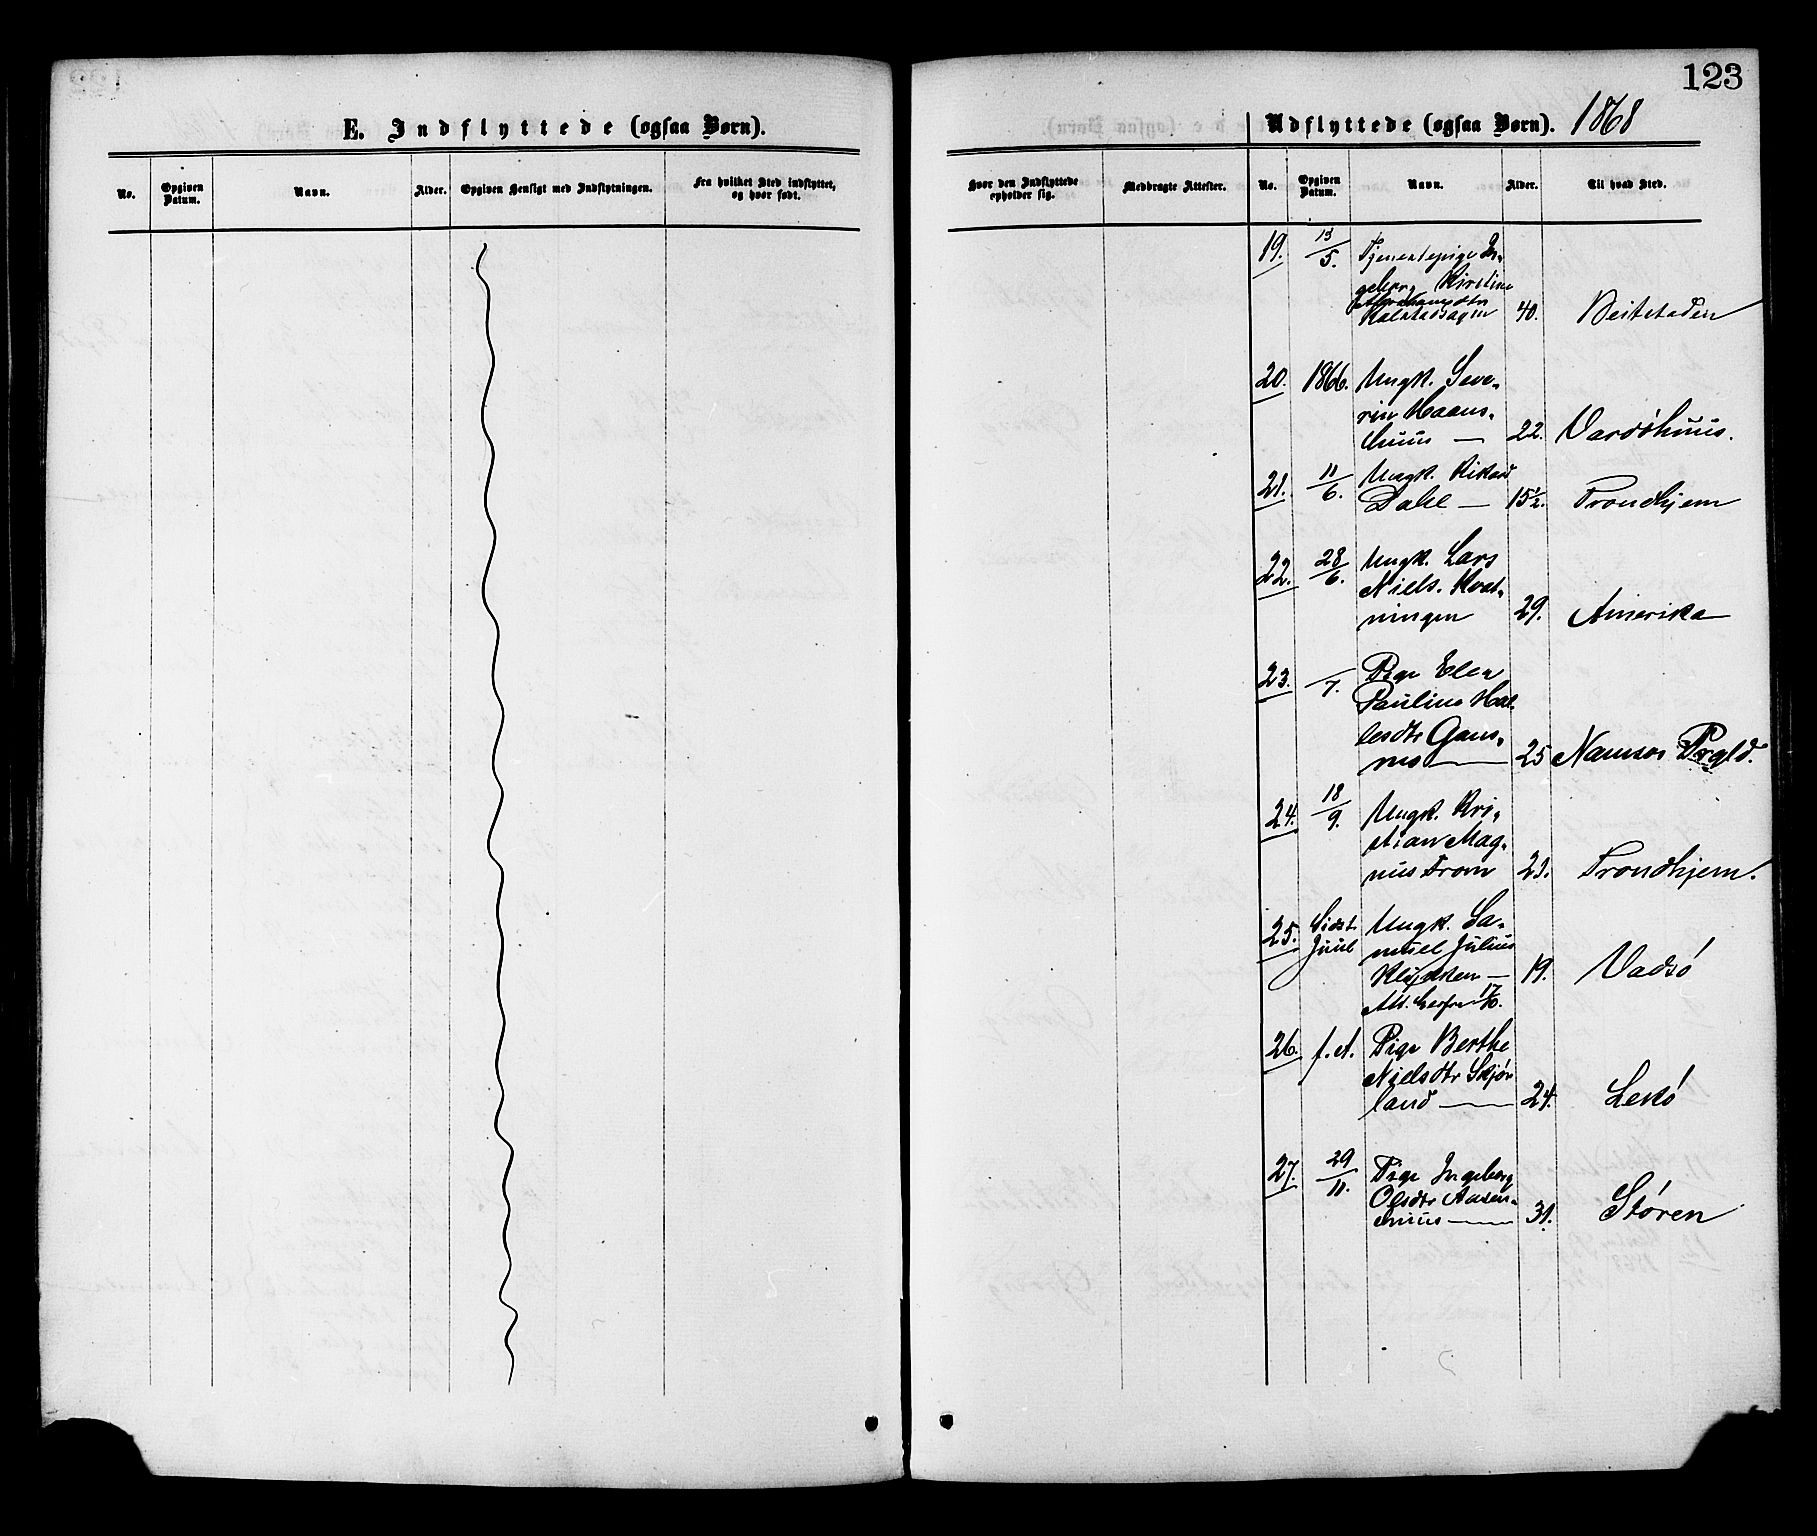 123
E. Indflyttede (ogsaa Børn).
No.
Opgiven Datum.
Navn.
Alder.
Opgiven Hensigt med Indflytningen.
Fra hvilket Sted indflyttet, og hvor født.
Udflyttede (ogsaa Børn). 1868
Hvor den Indflyttede opholder sig.
Medbragte Attester.
No.
Opgiven Datum.
Navn.
Alder.
Til hvad Sted.
19. 13/5. Tjenestepige In-
geborg Kirstine
40. Beitstaden
20. 1866. Ungk. Seve-
rin Haans-
huus — 22. Vardøhuus.
21. 11/6. Ungk. Rikard
Dahl — 15½. Trondhjem
22. 28/6. Ungk. Lars
Niels. Kvat-
ningen 29. Amerika
23. /7. Pige Elen
Pauline Hal-
lesdtr Gans-
mo — 25 Namsos Prgld.
24. 18/9. Ungk. Kri-
stian Mag-
nus From 23. Trondhjem.
25. Sidst Ungk. Sa-
Juul muel Julius
— 19. Vadsø
Att. 17/10.
26. f. A. Pige Berthe
Nielsdtr Skjør-
land — 24. Lekø
27. 29/11. Pige Ingeborg
Olsdtr Aasen-
huus — 31. Støren